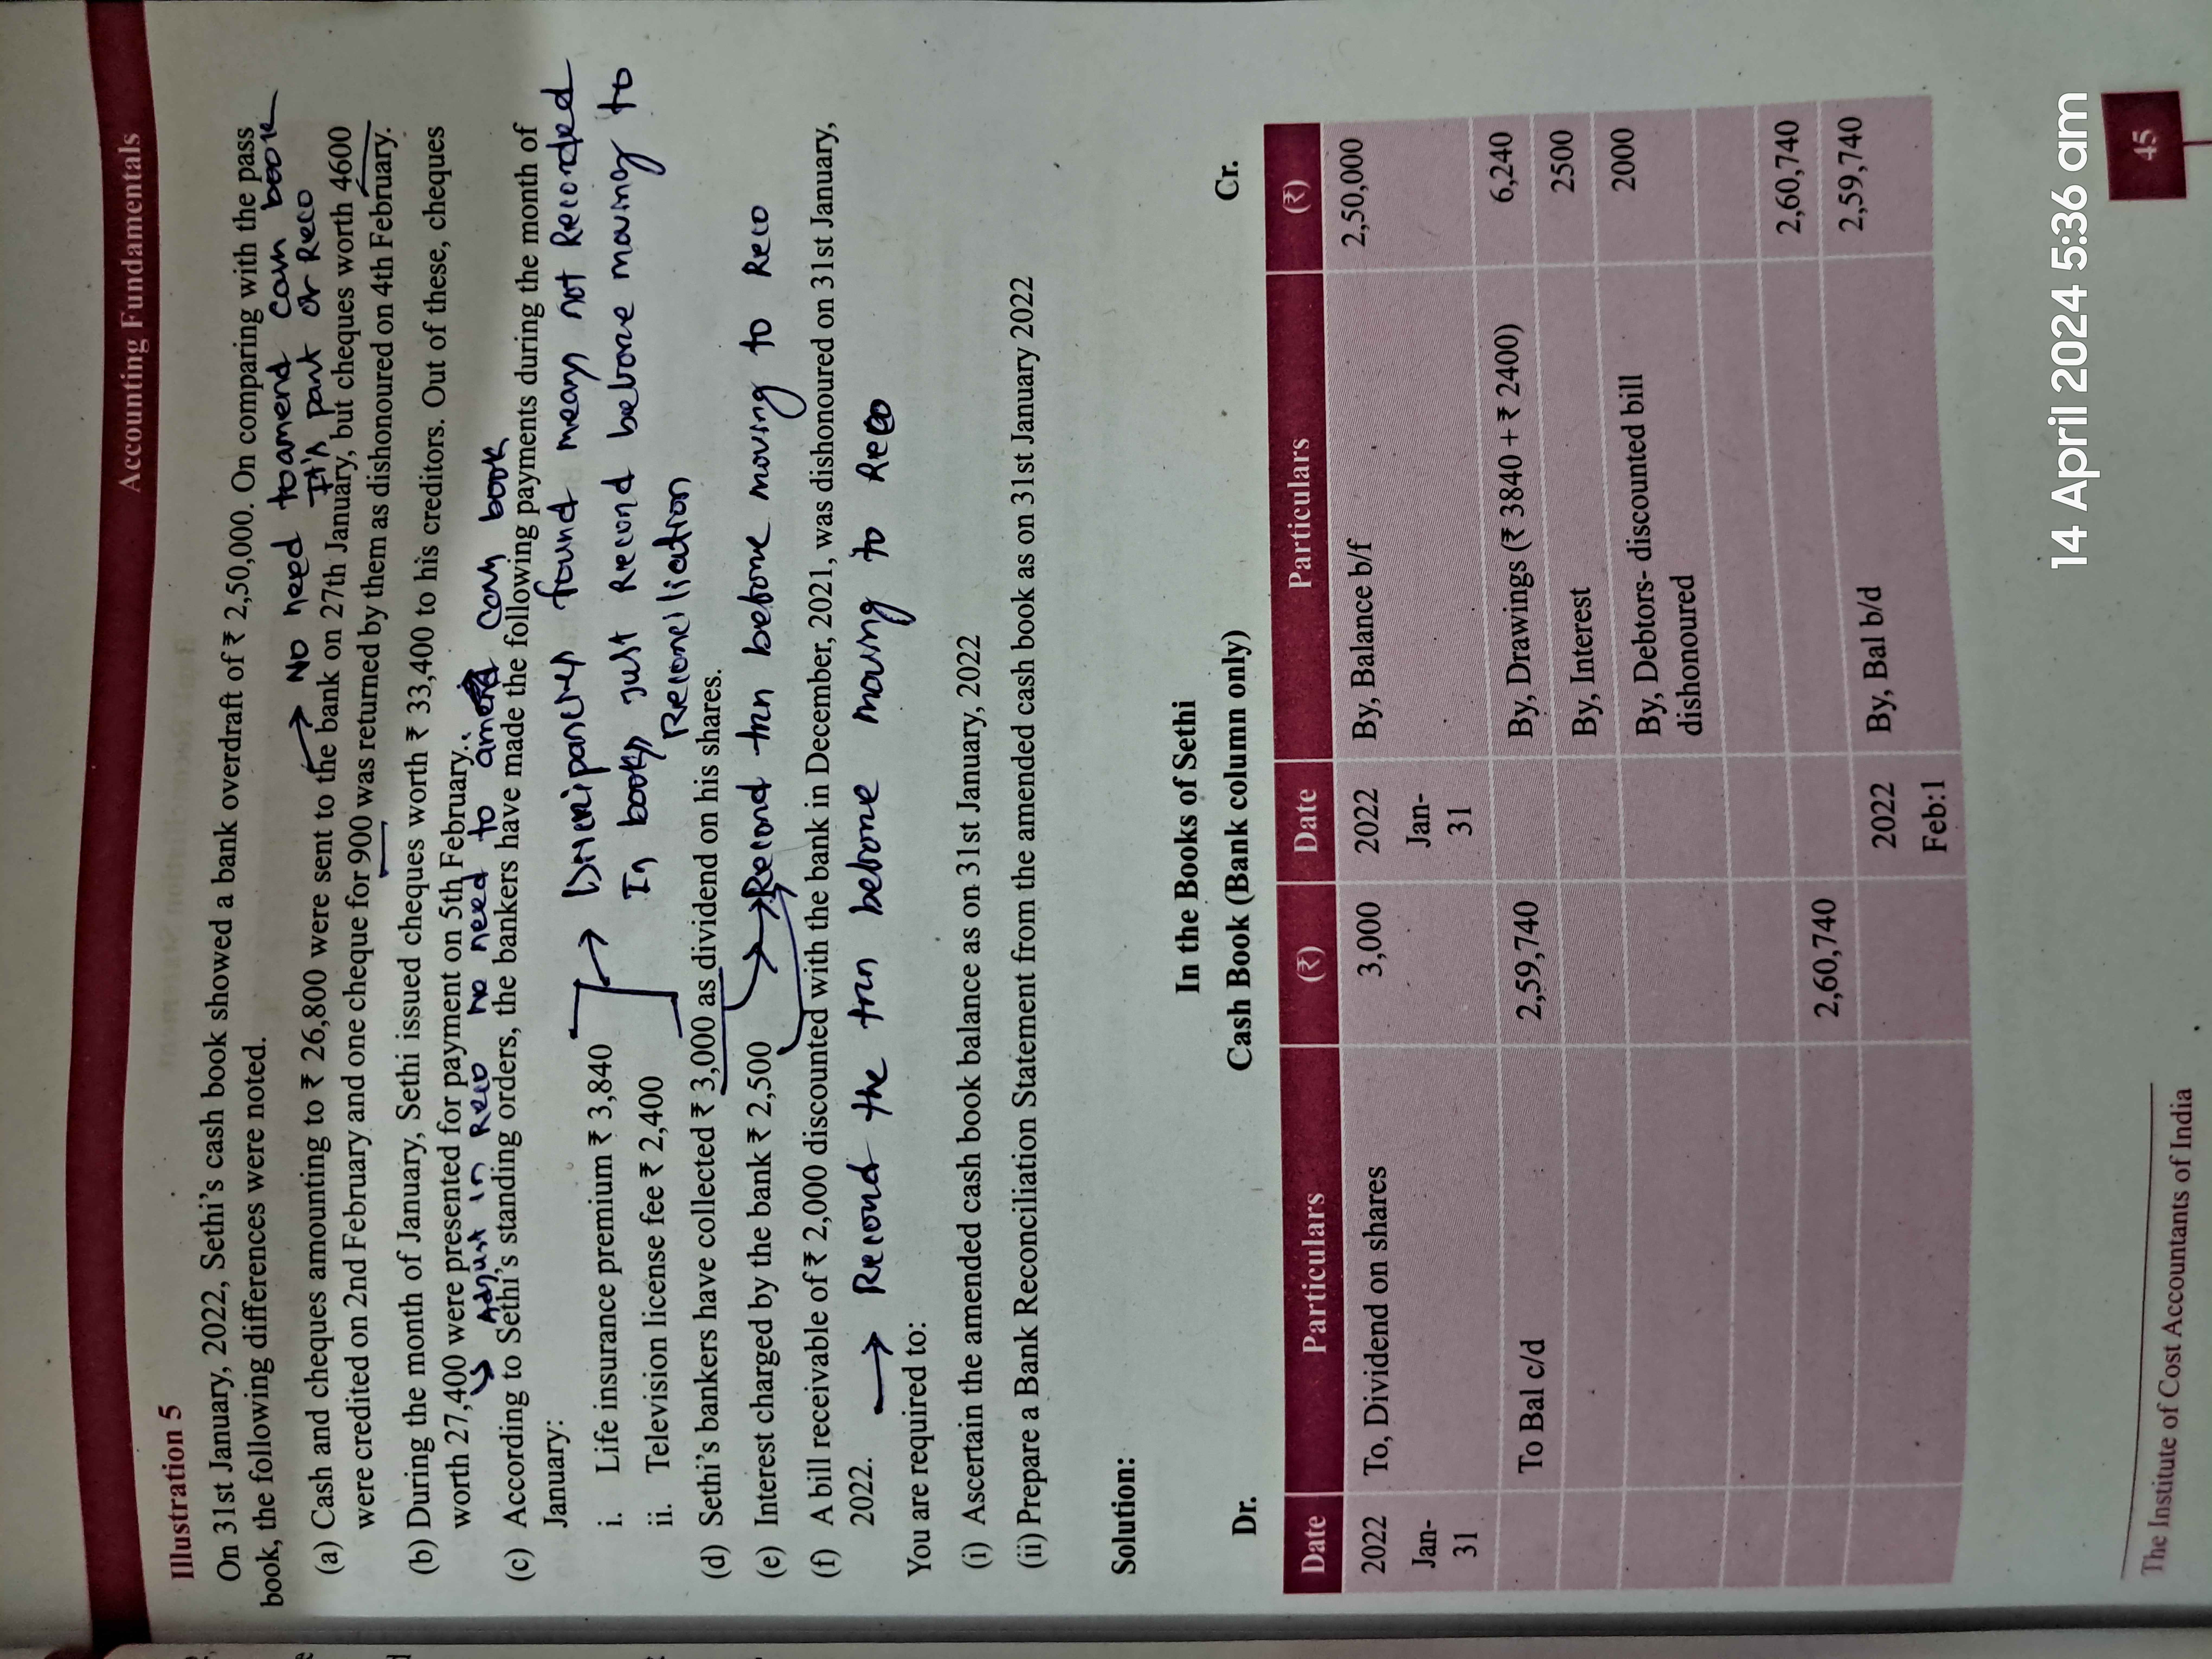 Accounting Fundamentals
Illustration 5
On 31st January, 2022, Sethi's cash book showed a bank overdraft of ₹ 2,50,000. On comparing with the pass
book, the following differences were noted.
→ No need to amend cash book
It's part of Reco
(a) Cash and cheques amounting to ₹ 26,800 were sent to the bank on 27th January, but cheques worth 4600
were credited on 2nd February and one cheque for 900 was returned by them as dishonoured on 4th February.
(b) During the month of January, Sethi issued cheques worth ₹ 33,400 to his creditors. Out of these, cheques
worth 27,400 were presented for payment on 5th February.
↳ Adjust in Reco no need to amend cash book
(c) According to Sethi's standing orders, the bankers have made the following payments during the month of
January:
i. Life insurance premium ₹ 3,840
ii. Television license fee ₹ 2,400
→ Discripancies found means not Recorded
In books just Record before moving to
Reconciliation
(d) Sethi's bankers have collected ₹ 3,000 as dividend on his shares.
(e) Interest charged by the bank ₹ 2,500
→ Record trn before moving to Reco
(f) A bill receivable of ₹ 2,000 discounted with the bank in December, 2021, was dishonoured on 31st January,
2022.
→ Record the trn before moving to Reco
You are required to:
(i) Ascertain the amended cash book balance as on 31st January, 2022
(ii) Prepare a Bank Reconciliation Statement from the amended cash book as on 31st January 2022
Solution:
In the Books of Sethi
Dr. Cash Book (Bank column only) Cr.
Date Particulars (₹) Date Particulars (₹)
2022 To, Dividend on shares 3,000 2022 By, Balance b/f 2,50,000
Jan- Jan-
31 31
To Bal c/d 2,59,740 By, Drawings (₹ 3840 + ₹ 2400) 6,240
By, Interest 2500
By, Debtors- discounted bill 2000
dishonoured
2,60,740 2,60,740
2022 By, Bal b/d 2,59,740
Feb:1
The Institute of Cost Accountants of India
45
14 April 2024 5:36 am